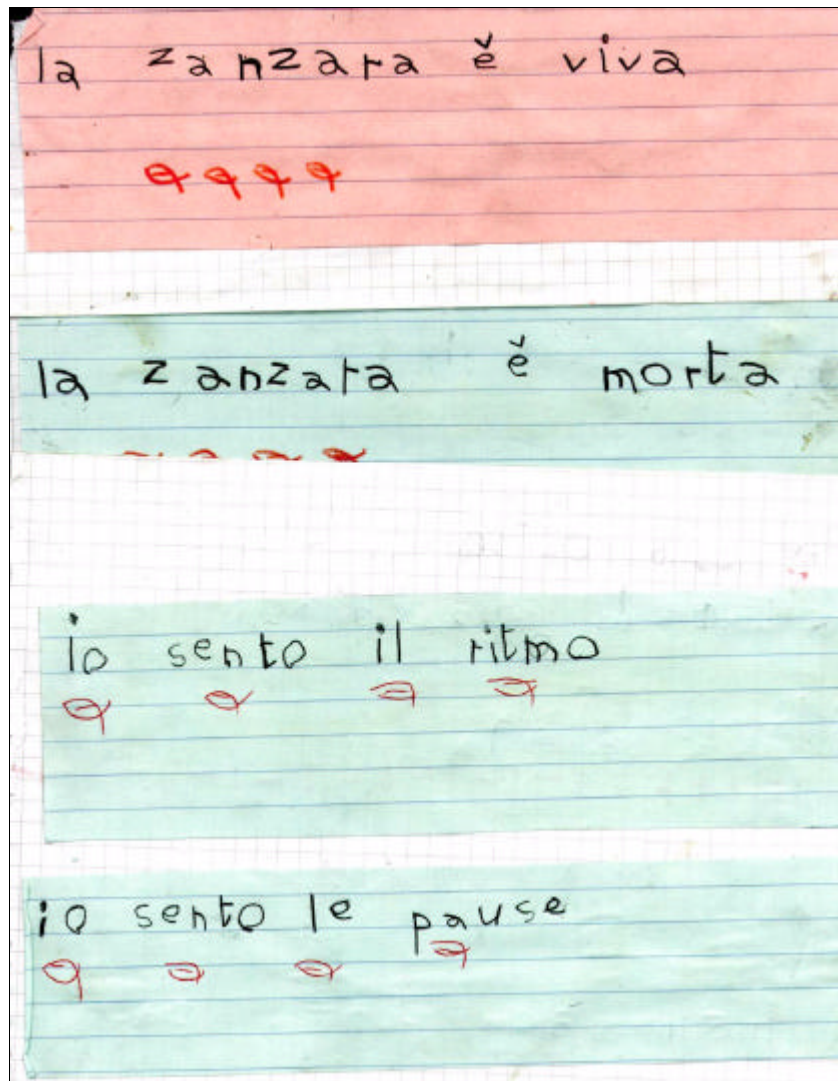 la zanzara ě viva
la zanzara ě morta
io sento il ritmo
io sento le pause